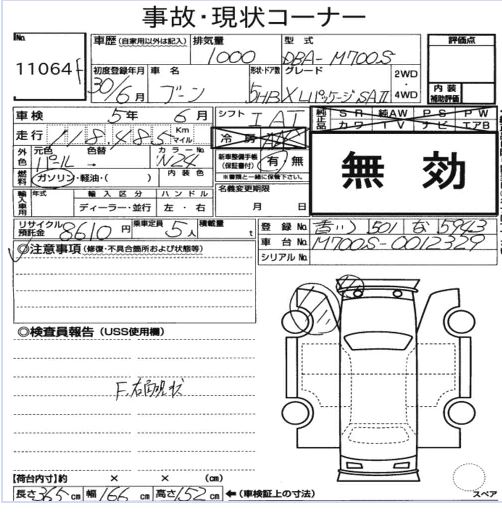 事故・現状コーナー
No. 11064
車歴 (自家用以外は記入) 排気量 1000 型式 DBA-M700S 評価点
初度登録年月 30年6月 車名 ブーン 形状・ドア数 5HB グレード X Lパッケージ SAII 2WD 4WD 内装補助評価
車検 5年6月 シフト IAT 純正品 SR 純AW PS PW
カワ TV ナビ エアB
走行 118,485 Km マイル 冷房 AAC
無効
外色 元色 パール 色替 カラーNo. W24 新車整備手帳(保証書付) 有 無
※書類と一緒に保管下さい。
燃料 ガソリン・軽油・( ) 内装色 名義変更期限
月 日
輸入車用 年式 輸入区分 ディーラー・並行 ハンドル 左・右
リサイクル預託金 8610円 乗車定員 5人 積載量 t
登録No. 501 5943
車台No. M700S-0012329
シリアルNo.
◎注意事項 (修復・不具合箇所および状態等)
◎検査員報告 (USS使用欄)
F.右面現状
【荷台内寸】約 × × (cm)
長さ 365 cm 幅 166 cm 高さ 152 cm ←(車検証上の寸法)
スペア